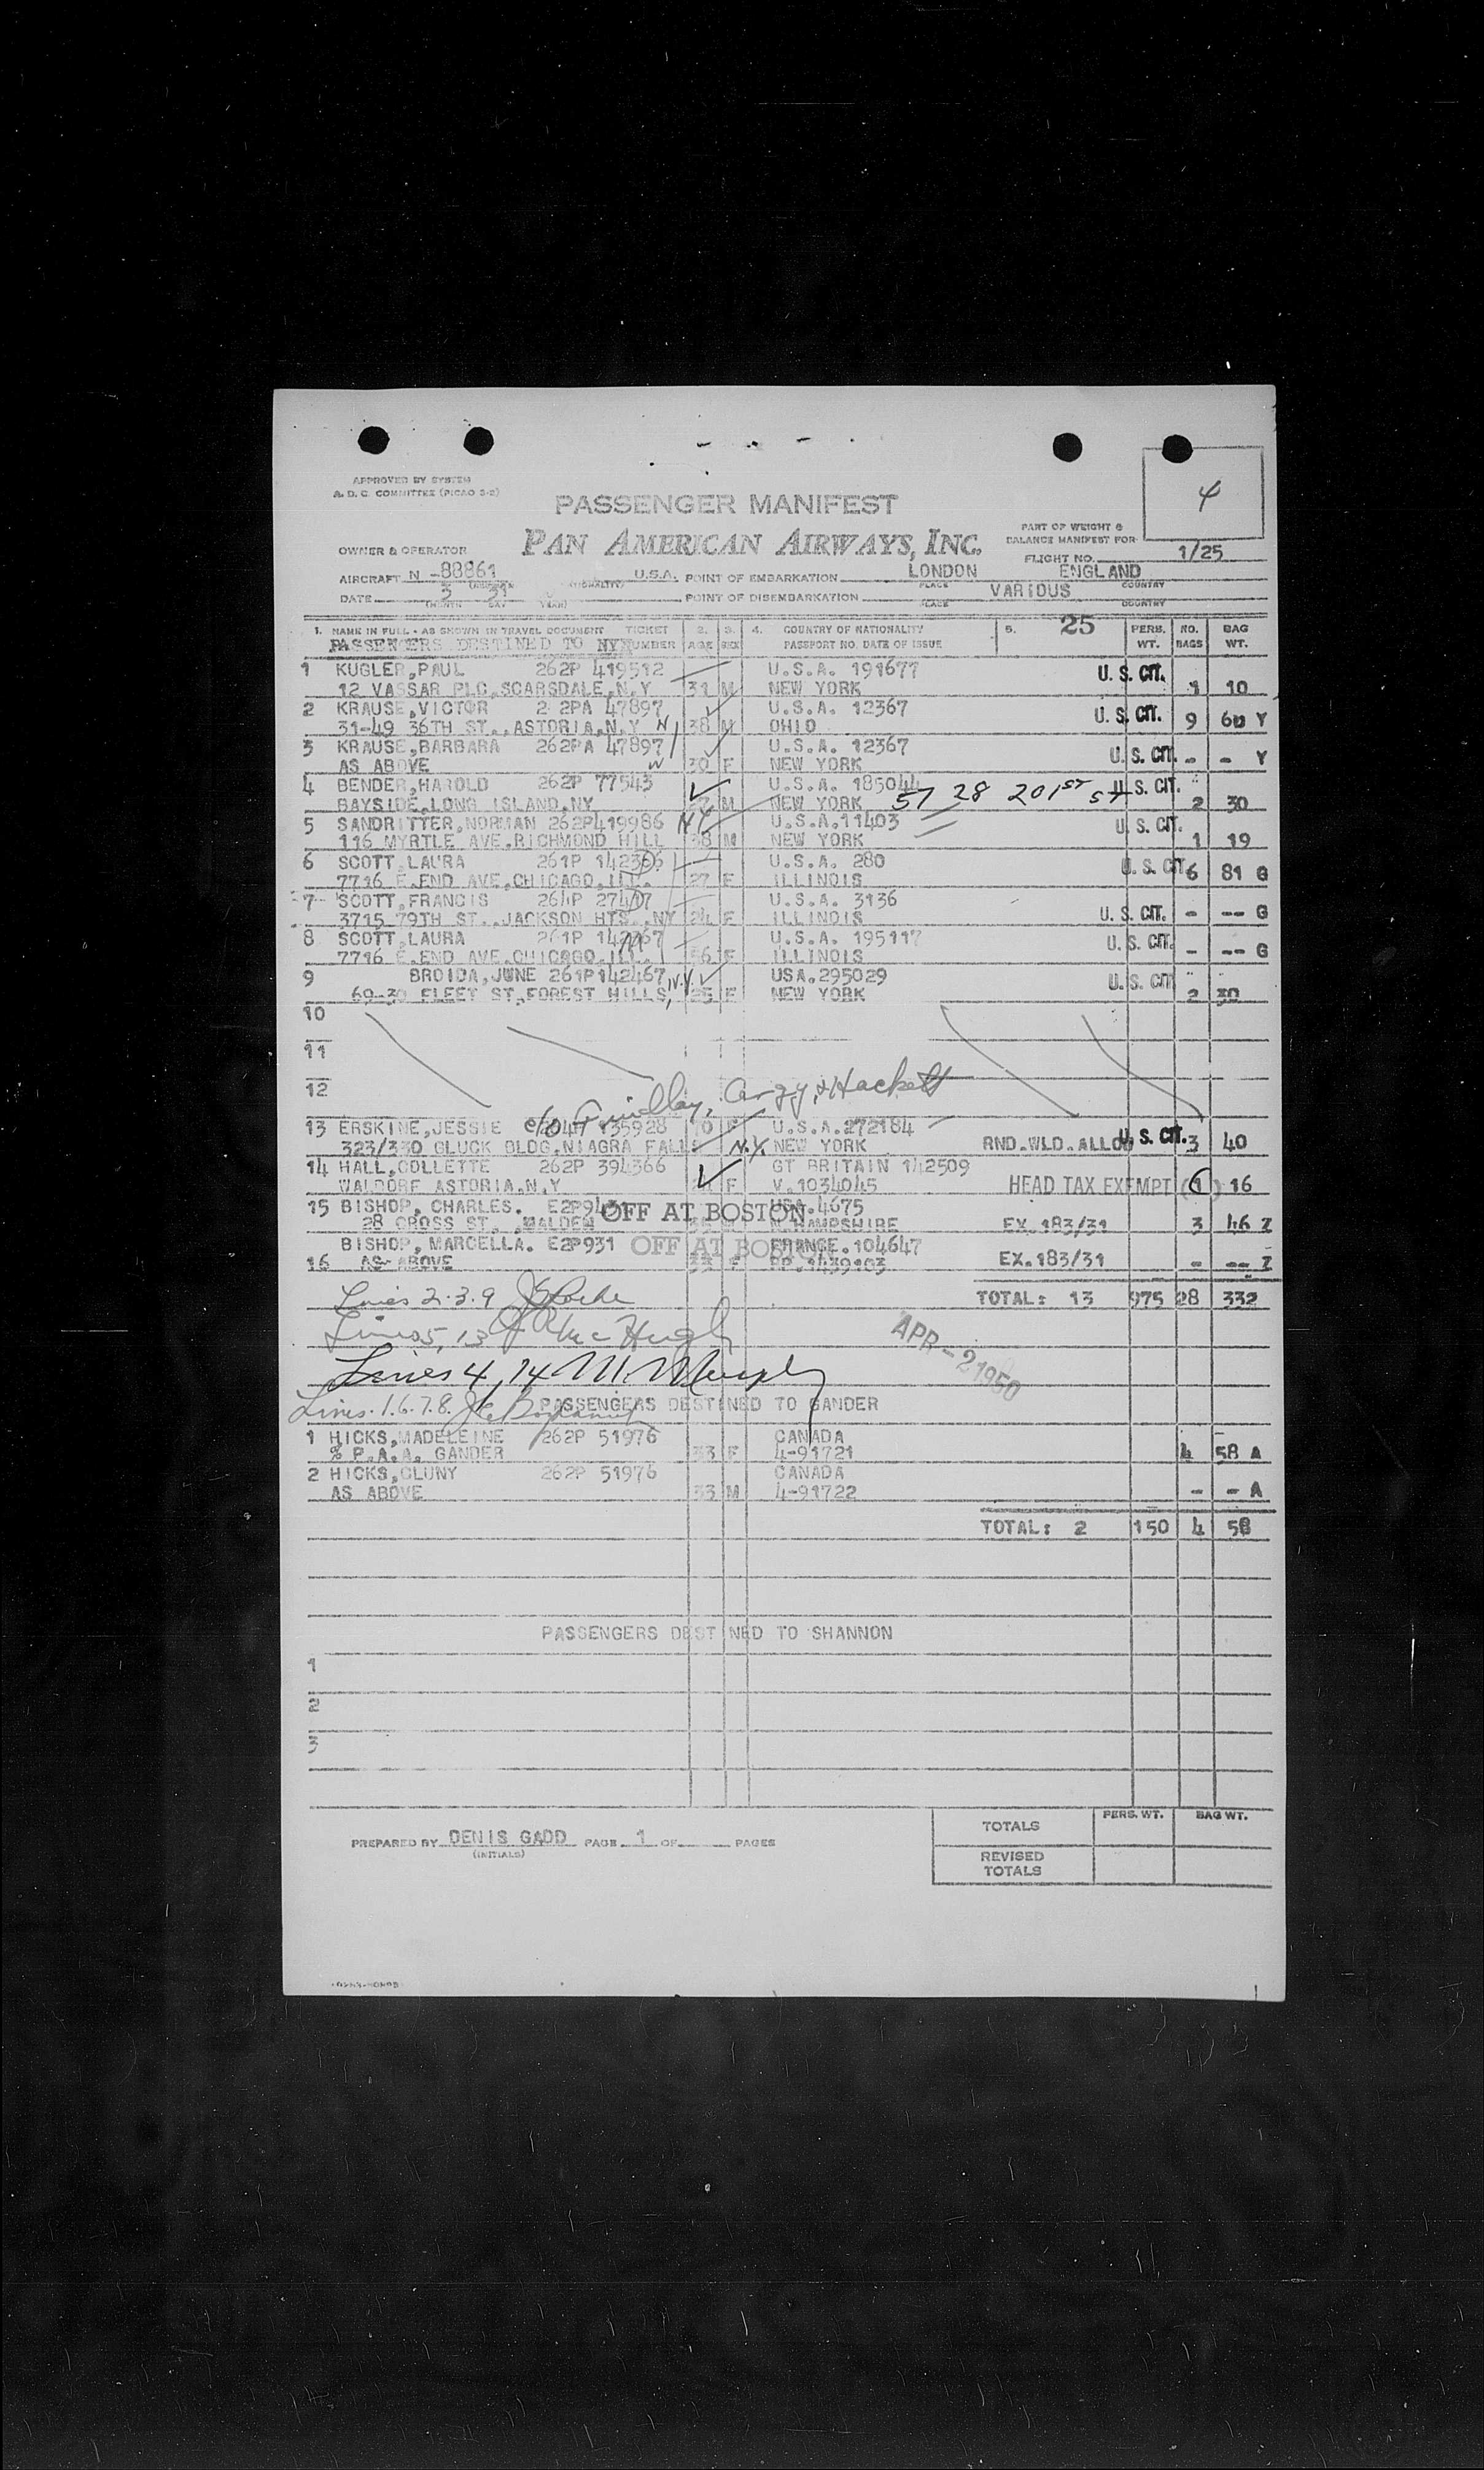 4
APPROVED BY SYSTEM
A. D. C. COMMITTEE (PICAO 3-2)
PASSENGER MANIFEST
PAN AMERICAN AIRWAYS, INC.
PART OF WEIGHT &
BALANCE MANIFEST FOR
OWNER & OPERATOR
FLIGHT NO. 1/25
AIRCRAFT N -88861 U.S.A. POINT OF EMBARKATION LONDON ENGLAND
PLACE COUNTRY
DATE 3 31 POINT OF DISEMBARKATION VARIOUS
(MONTH DAY YEAR) PLACE COUNTRY
1. NAME IN FULL - AS SHOWN IN TRAVEL DOCUMENT TICKET NUMBER 2. AGE 3. SEX 4. COUNTRY OF NATIONALITY PASSPORT NO. DATE OF ISSUE 5. 25 PERS. WT. NO. BAGS BAG WT.
PASSENGERS DESTINED TO NY
1 KUGLER,PAUL 262P 419512 U.S.A. 191677 U.S. CIT.
12 VASSAR PLC,SCARSDALE,N.Y 31 M NEW YORK 1 10
2 KRAUSE,VICTOR 2 2PA 47897 U.S.A. 12367 U.S. CIT. 9 60 Y
31-49 36TH ST., ASTORIA,N.Y 38 M OHIO
3 KRAUSE,BARBARA 262PA 47897 U.S.A. 12367 U.S. CIT. - - Y
AS ABOVE 30 F NEW YORK
4 BENDER,HAROLD 262P 77543 U.S.A. 185044 U.S. CIT.
BAYSIDE,LONG ISLAND,NY M NEW YORK 57 28 201ST ST 2 30
5 SANDRITTER,NORMAN 262P419986 NY U.S.A.11403 U.S. CIT.
116 MYRTLE AVE,RICHMOND HILL 38 M NEW YORK 1 19
6 SCOTT,LAURA 261P 142366 U.S.A. 280 U.S. CIT. 6 81 G
7716 E.END AVE,CHICAGO,ILL. 27 F ILLINOIS
7 SCOTT,FRANCIS 264P 27417 U.S.A. 3136
3715 79TH ST., JACKSON HTS.,NY 24 F ILLINOIS U.S. CIT. - -- G
8 SCOTT,LAURA 261P 142367 U.S.A. 195117 U.S. CIT. - -- G
7716 E.END AVE,CHICAGO,ILL. 56 F ILLINOIS
9 BROIDA,JUNE 261P142467 N.Y. USA.295029 U.S. CIT
69-30 FLEET ST,FOREST HILLS, 25 F NEW YORK 2 30
10
11
12
c/o Findlay, Argy, & Hackett
13 ERSKINE,JESSIE 35928 70 F U.S.A.272184 U.S. CIT. 3 40
323/330 GLUCK BLDG,NIAGRA FALLS N.Y. NEW YORK RND.WLD.ALLOW
14 HALL,COLLETTE 262P 394366 GT BRITAIN 142509
WALDORF ASTORIA,N.Y F V.1034045 HEAD TAX EXEMPT (1) 16
15 BISHOP, CHARLES. E2P943 OFF AT BOSTON USA.4675
28 CROSS ST., MALDEN N.HAMPSHIRE EX.183/31 3 46 Z
BISHOP, MARCELLA. E2P931 OFF AT BOSTON FRANCE.104647
16 AS ABOVE 33 F PP.1439103 EX.183/31 - -- Z
Lines 2.3.9 TOTAL: 13 975 28 332
Lines 5, 13 McHugh
APR -2 1950
Lines 4, 14 M. Murphy
Lines. 1.6.7.8. PASSENGERS DESTINED TO GANDER
1 HICKS,MADELEINE 262P 51976 CANADA
% P.A.A. GANDER 33 F 4-91721 4 58 A
2 HICKS,CLUNY 262P 51976 CANADA
AS ABOVE 33 M 4-91722 - - A
TOTAL: 2 150 4 58
PASSENGERS DESTINED TO SHANNON
1
2
3
PREPARED BY DENIS GADD PAGE 1 OF PAGES
(INITIALS)
PERS. WT. BAG WT.
TOTALS
REVISED
TOTALS